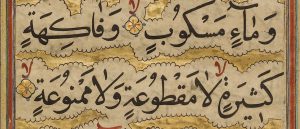 وَمَآءٍ مَسْكُوبٍ لا وَفَاكِهَةٍ
كَثِيرَةٍ لا لَامَقْطُوعَةٍ وَلَامَمْنُوعَةٍ لا